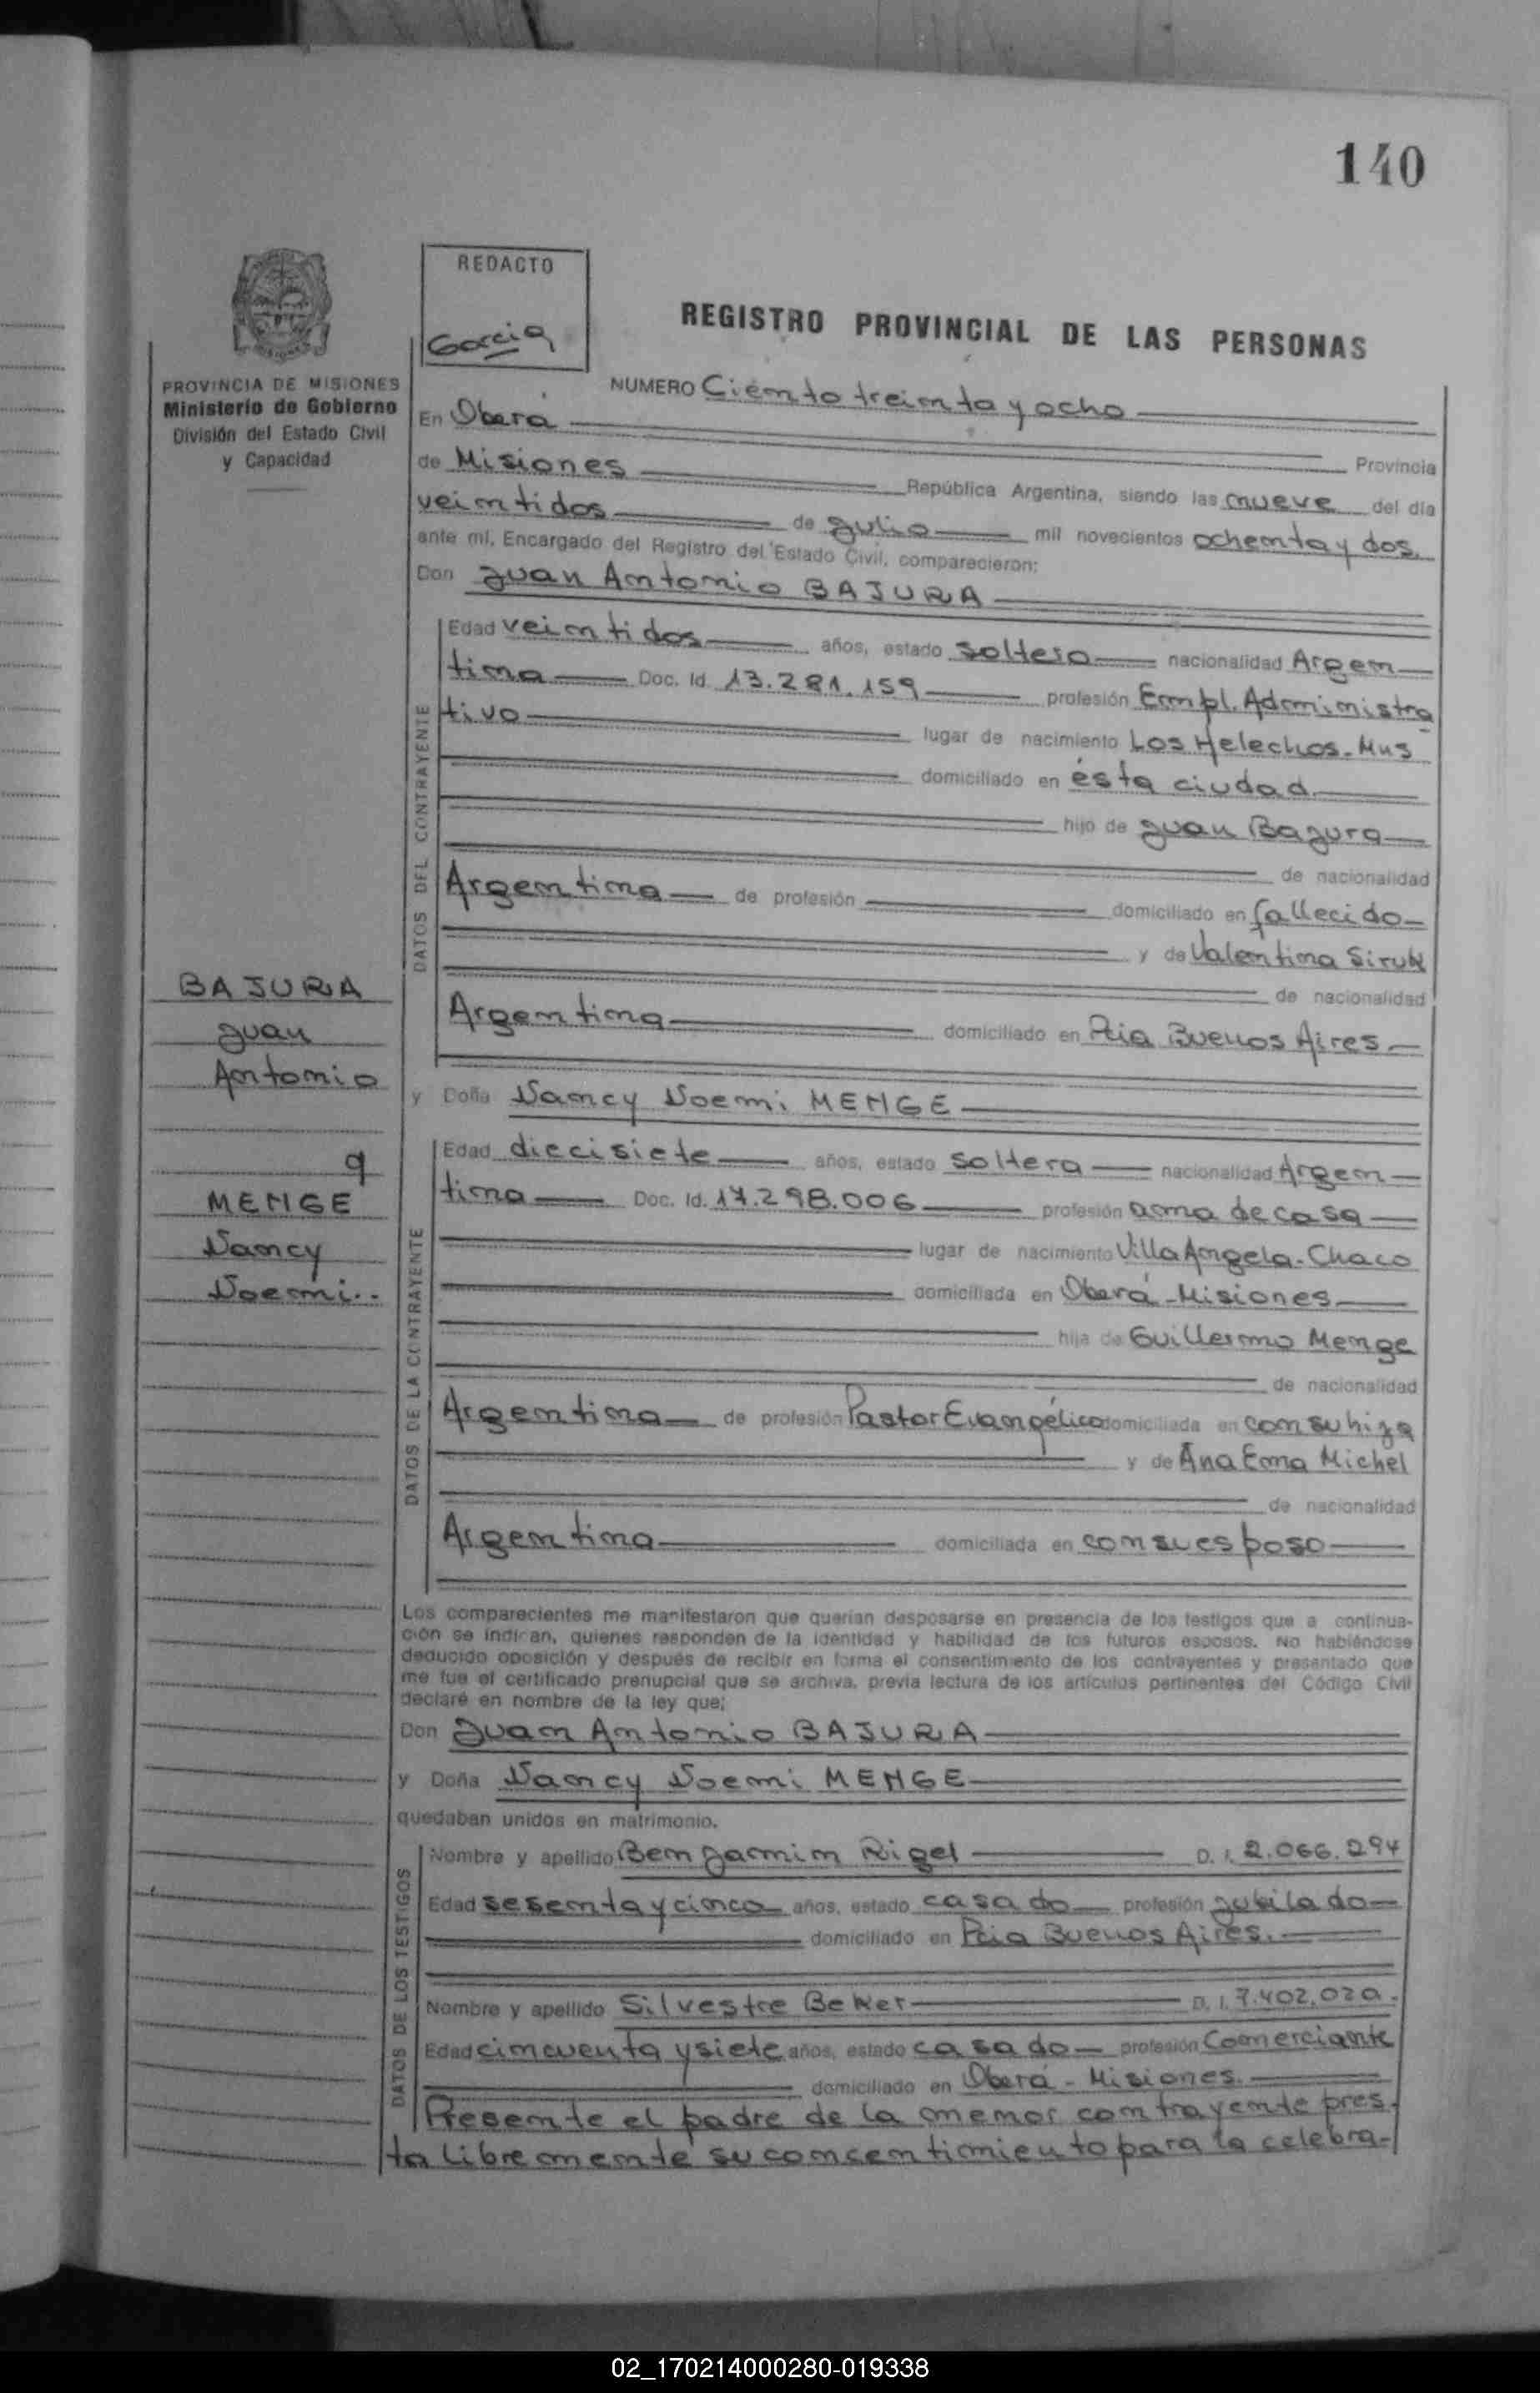 140
REDACTO
Garcia
REGISTRO PROVINCIAL DE LAS PERSONAS
PROVINCIA DE MISIONES
Ministerio de Gobierno
División del Estado Civil
y Capacidad
NUMERO Ciento treinta y ocho
En Oberá
Provincia
de Misiones República Argentina, siendo las nueve del día
veintidos de Julio mil novecientos ochenta y dos.
ante mí, Encargado del Registro del Estado Civil, comparecieron:
Don Juan Antonio BAJURA
DATOS DEL CONTRAYENTE
Edad veintidos años, estado soltero nacionalidad Argen
tina Doc. Id. 13.281.159 profesión Empl. Administra
tivo lugar de nacimiento Los Helechos-Mns
domiciliado en ésta ciudad
hijo de Juan Bajura
de nacionalidad
Argentina de profesión domiciliado en fallecido
y de Valentina Siruk
de nacionalidad
Argentina domiciliado en Pcia Buenos Aires
BAJURA
Juan
Antonio
y
MENGE
Nancy
Noemi..
y Doña Nancy Noemi MENGE
DATOS DE LA CONTRAYENTE
Edad diecisiete años, estado soltera nacionalidad Argen
tina Doc. Id. 17.298.006 profesión ama de casa
lugar de nacimiento Villa Angela-Chaco
domiciliada en Oberá-Misiones
hija de Guillermo Menge
de nacionalidad
Argentina de profesión Pastor Evangélico domiciliada en con su hija
y de Ana Ema Michel
de nacionalidad
Argentina domiciliada en con su esposo
Los comparecientes me manifestaron que querían desposarse en presencia de los testigos que a continua-
ción se indican, quienes responden de la identidad y habilidad de los futuros esposos. No habiéndose
deducido oposición y después de recibir en forma el consentimiento de los contrayentes y presentado que
me fue el certificado prenupcial que se archiva, previa lectura de los artículos pertinentes del Código Civil
declaré en nombre de la ley que;
Don Juan Antonio BAJURA
y Doña Nancy Noemi MENGE
quedaban unidos en matrimonio.
DATOS DE LOS TESTIGOS
Nombre y apellido Benjamin Rigel D. I. 2.066.294
Edad sesenta y cinco años, estado casado profesión jubilado
domiciliado en Pcia Buenos Aires.
Nombre y apellido Silvestre Beker D. I. 7.402.020.
Edad cincuenta y siete años, estado casado profesión Comerciante
domiciliado en Oberá - Misiones.
Presente el padre de la menor contrayente pres
ta libremente su consentimiento para la celebra-
02_170214000280-019338